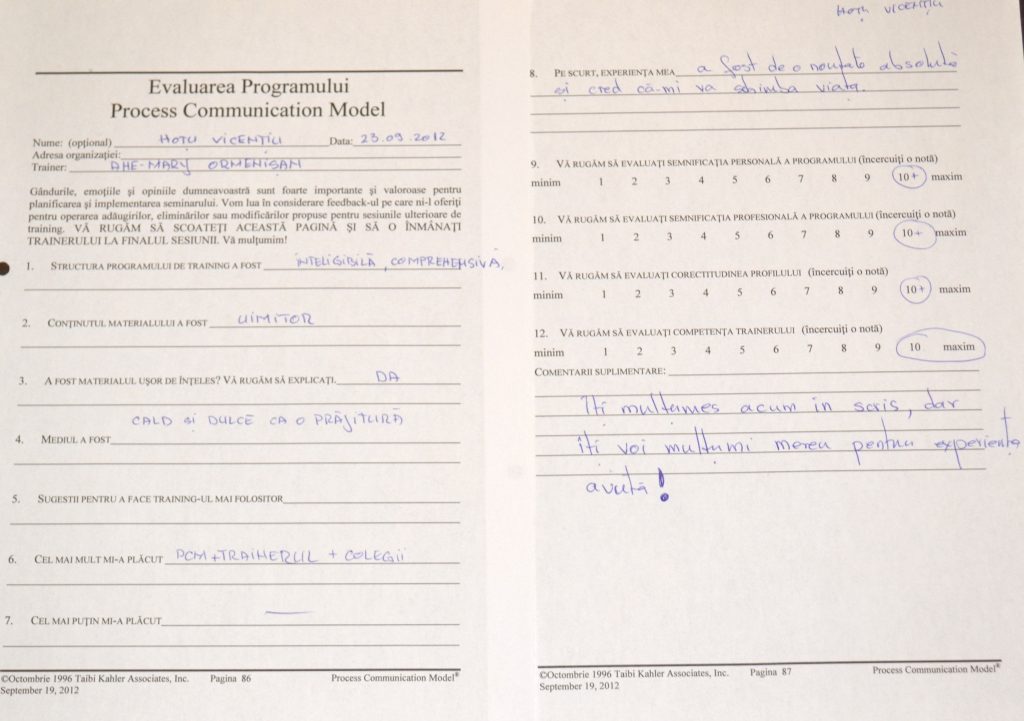 Evaluarea Programului
Process Communication Model
Nume: (opțional) HOȚU VICENȚIU Data: 23.09.2012
Adresa organizației:
Trainer: ANE-MARY ORMENIȘAN
Gândurile, emoțiile și opiniile dumneavoastră sunt foarte importante și valoroase pentru
planificarea și implementarea seminarului. Vom lua în considerare feedback-ul pe care ni-l oferiți
pentru operarea adăugirilor, eliminărilor sau modificărilor propuse pentru sesiunile ulterioare de
training. VĂ RUGĂM SĂ SCOATEȚI ACEASTĂ PAGINĂ ȘI SĂ O ÎNMÂNAȚI
TRAINERULUI LA FINALUL SESIUNII. Vă mulțumim!
1. STRUCTURA PROGRAMULUI DE TRAINING A FOST INTELIGIBILĂ, COMPREHENSIVĂ,
2. CONȚINUTUL MATERIALULUI A FOST UIMITOR
3. A FOST MATERIALUL UȘOR DE ÎNȚELES? VĂ RUGĂM SĂ EXPLICAȚI. DA
CALD și DULCE CA O PRĂJITURĂ
4. MEDIUL A FOST
5. SUGESTII PENTRU A FACE TRAINING-UL MAI FOLOSITOR
6. CEL MAI MULT MI-A PLĂCUT PCM+TRAINERUL + COLEGII
7. CEL MAI PUȚIN MI-A PLĂCUT —
©Octombrie 1996 Taibi Kahler Associates, Inc. Pagina 86 Process Communication Model®
September 19, 2012
HOȚU VICENȚIU
8. PE SCURT, EXPERIENȚA MEA a fost de o noutate absolută
și cred că-mi va schimba viața.
9. VĂ RUGĂM SĂ EVALUAȚI SEMNIFICAȚIA PERSONALĂ A PROGRAMULUI (încercuiți o notă)
minim 1 2 3 4 5 6 7 8 9 10+ maxim
10. VĂ RUGĂM SĂ EVALUAȚI SEMNIFICAȚIA PROFESIONALĂ A PROGRAMULUI (încercuiți o notă)
minim 1 2 3 4 5 6 7 8 9 10+ maxim
11. VĂ RUGĂM SĂ EVALUAȚI CORECTITUDINEA PROFILULUI (încercuiți o notă)
minim 1 2 3 4 5 6 7 8 9 10+ maxim
12. VĂ RUGĂM SĂ EVALUAȚI COMPETENȚA TRAINERULUI (încercuiți o notă)
minim 1 2 3 4 5 6 7 8 9 10 maxim
COMENTARII SUPLIMENTARE:
Îți mulțumes acum în scris, dar
îți voi mulțumi mereu pentru experiența
avută!
©Octombrie 1996 Taibi Kahler Associates, Inc. Pagina 87 Process Communication Model®
September 19, 2012